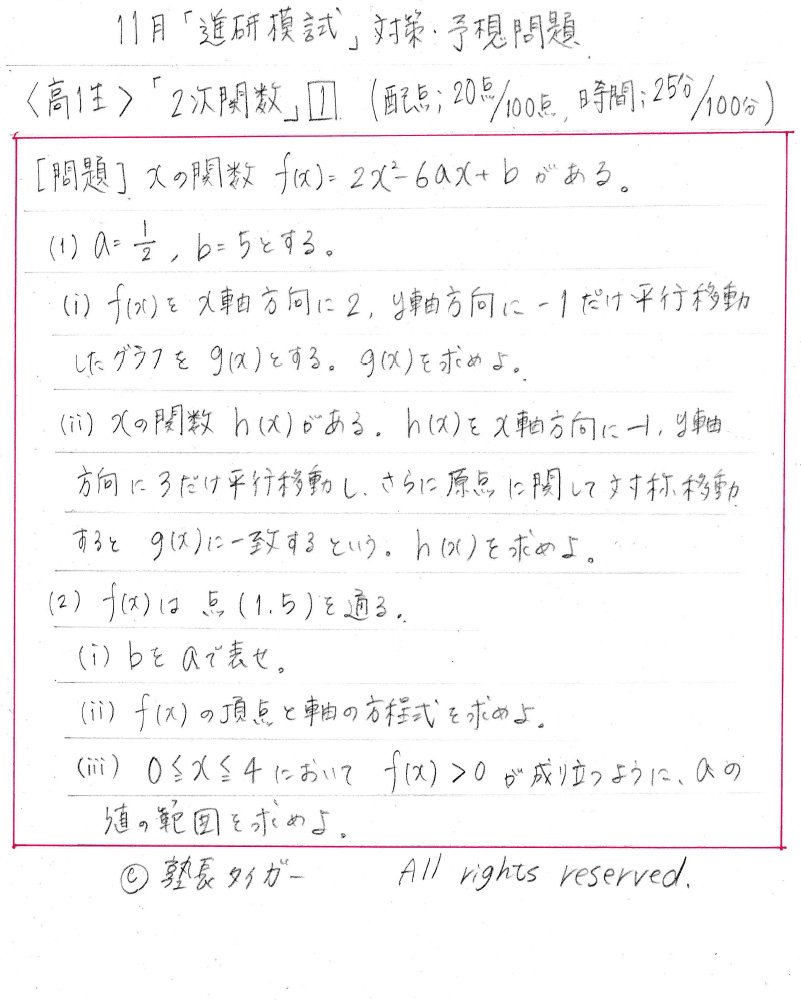 11月「進研模試」対策・予想問題
〈高1生〉「2次関数」1 (配点;20点/100点,時間;25分/100分)
[問題] xの関数 f(x)=2x²-6ax+b がある。
(1) a=1/2, b=5とする。
(i) f(x)を x軸方向に 2, y軸方向に -1だけ平行移動
したグラフを g(x)とする。 g(x)を求めよ。
(ii) xの関数 h(x)がある。 h(x)を x軸方向に-1, y軸
方向に3だけ平行移動し、さらに原点に関して対称移動
すると g(x)に一致するという。 h(x)を求めよ。
(2) f(x)は 点(1.5)を通る。
(i) bを aで表せ。
(ii) f(x)の頂点と軸の方程式を求めよ。
(iii) 0≦x≦4において f(x)>0 が成り立つように、aの
値の範囲を求めよ。
© 塾長タイガー All rights reserved.